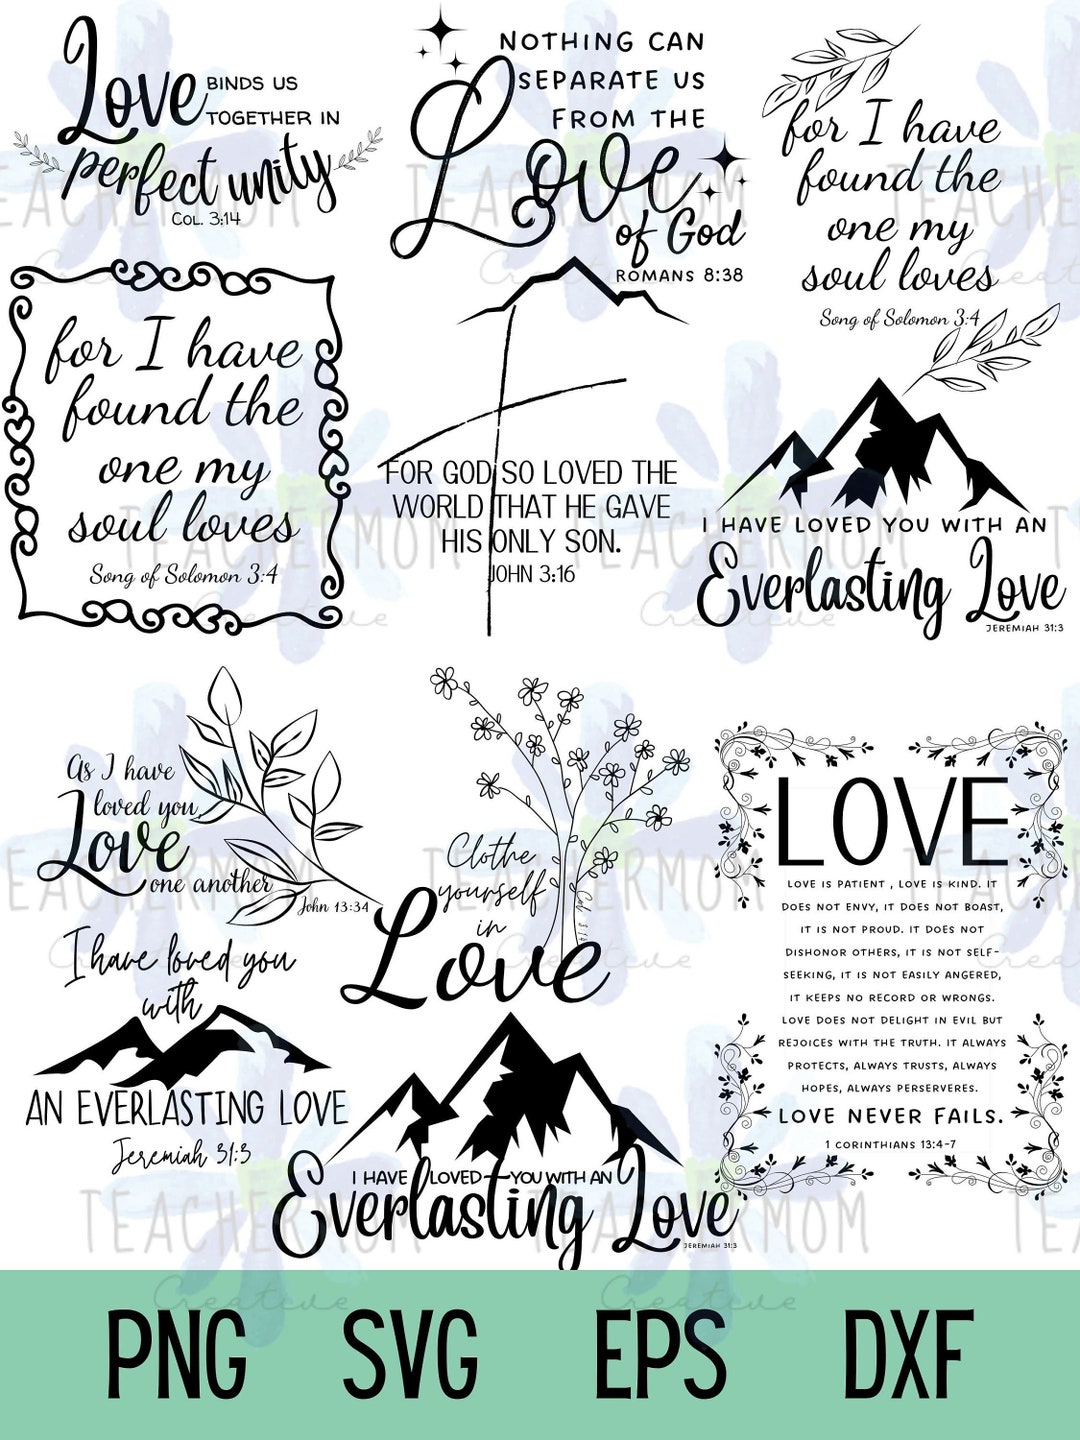 Love BINDS US
TOGETHER IN
perfect unity
COL. 3:14
NOTHING CAN
SEPARATE US
FROM THE
Love
of God
ROMANS 8:38
for I have
found the
one my
soul loves
Song of Solomon 3:4
for I have
found the
one my
soul loves
Song of Solomon 3:4
FOR GOD SO LOVED THE
WORLD THAT HE GAVE
HIS ONLY SON.
JOHN 3:16
I HAVE LOVED YOU WITH AN
Everlasting Love
JEREMIAH 31:3
As I have
loved you,
Love
one another
John 13:34
Clothe
yourself
in
Love
LOVE
LOVE IS PATIENT , LOVE IS KIND. IT
DOES NOT ENVY, IT DOES NOT BOAST,
IT IS NOT PROUD. IT DOES NOT
DISHONOR OTHERS, IT IS NOT SELF-
SEEKING, IT IS NOT EASILY ANGERED,
IT KEEPS NO RECORD OR WRONGS.
LOVE DOES NOT DELIGHT IN EVIL BUT
REJOICES WITH THE TRUTH. IT ALWAYS
PROTECTS, ALWAYS TRUSTS, ALWAYS
HOPES, ALWAYS PERSERVERES.
LOVE NEVER FAILS.
1 CORINTHIANS 13:4-7
I have loved you
with
AN EVERLASTING LOVE
Jeremiah 31:3
I HAVE LOVED YOU WITH AN
Everlasting Love
JEREMIAH 31:3
TEACHERMOM
Creative
PNG SVG EPS DXF